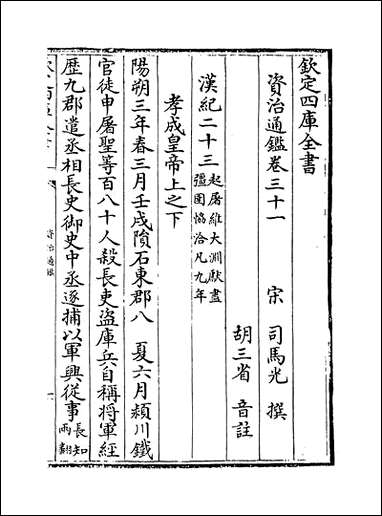 欽定四庫全書
資治通鑑卷三十一
宋 司馬光 撰
胡三省 音註
漢紀二十三起屠維大淵獻盡彊圉協洽凡九年
孝成皇帝上之下
陽朔三年春三月壬戌隕石東郡八 夏六月潁川鐵
官徒申屠聖等百八十人殺長吏盜庫兵自稱將軍經
歷九郡遣丞相長史御史中丞逐捕以軍興從事長知兩翻
資治通鑑